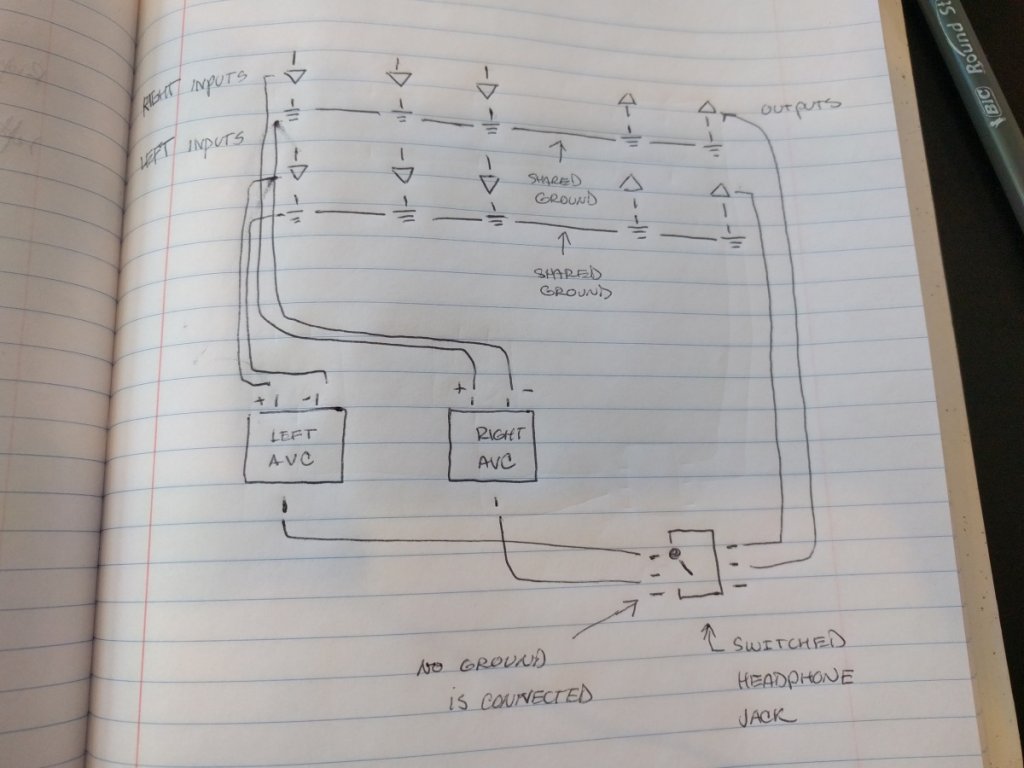 RIGHT INPUTS
OUTPUTS
LEFT INPUTS
SHARED
GROUND
SHARED
GROUND
+ - + -
LEFT
AVC
RIGHT
AVC
NO GROUND
IS CONNECTED
SWITCHED
HEADPHONE
JACK
BIC Round